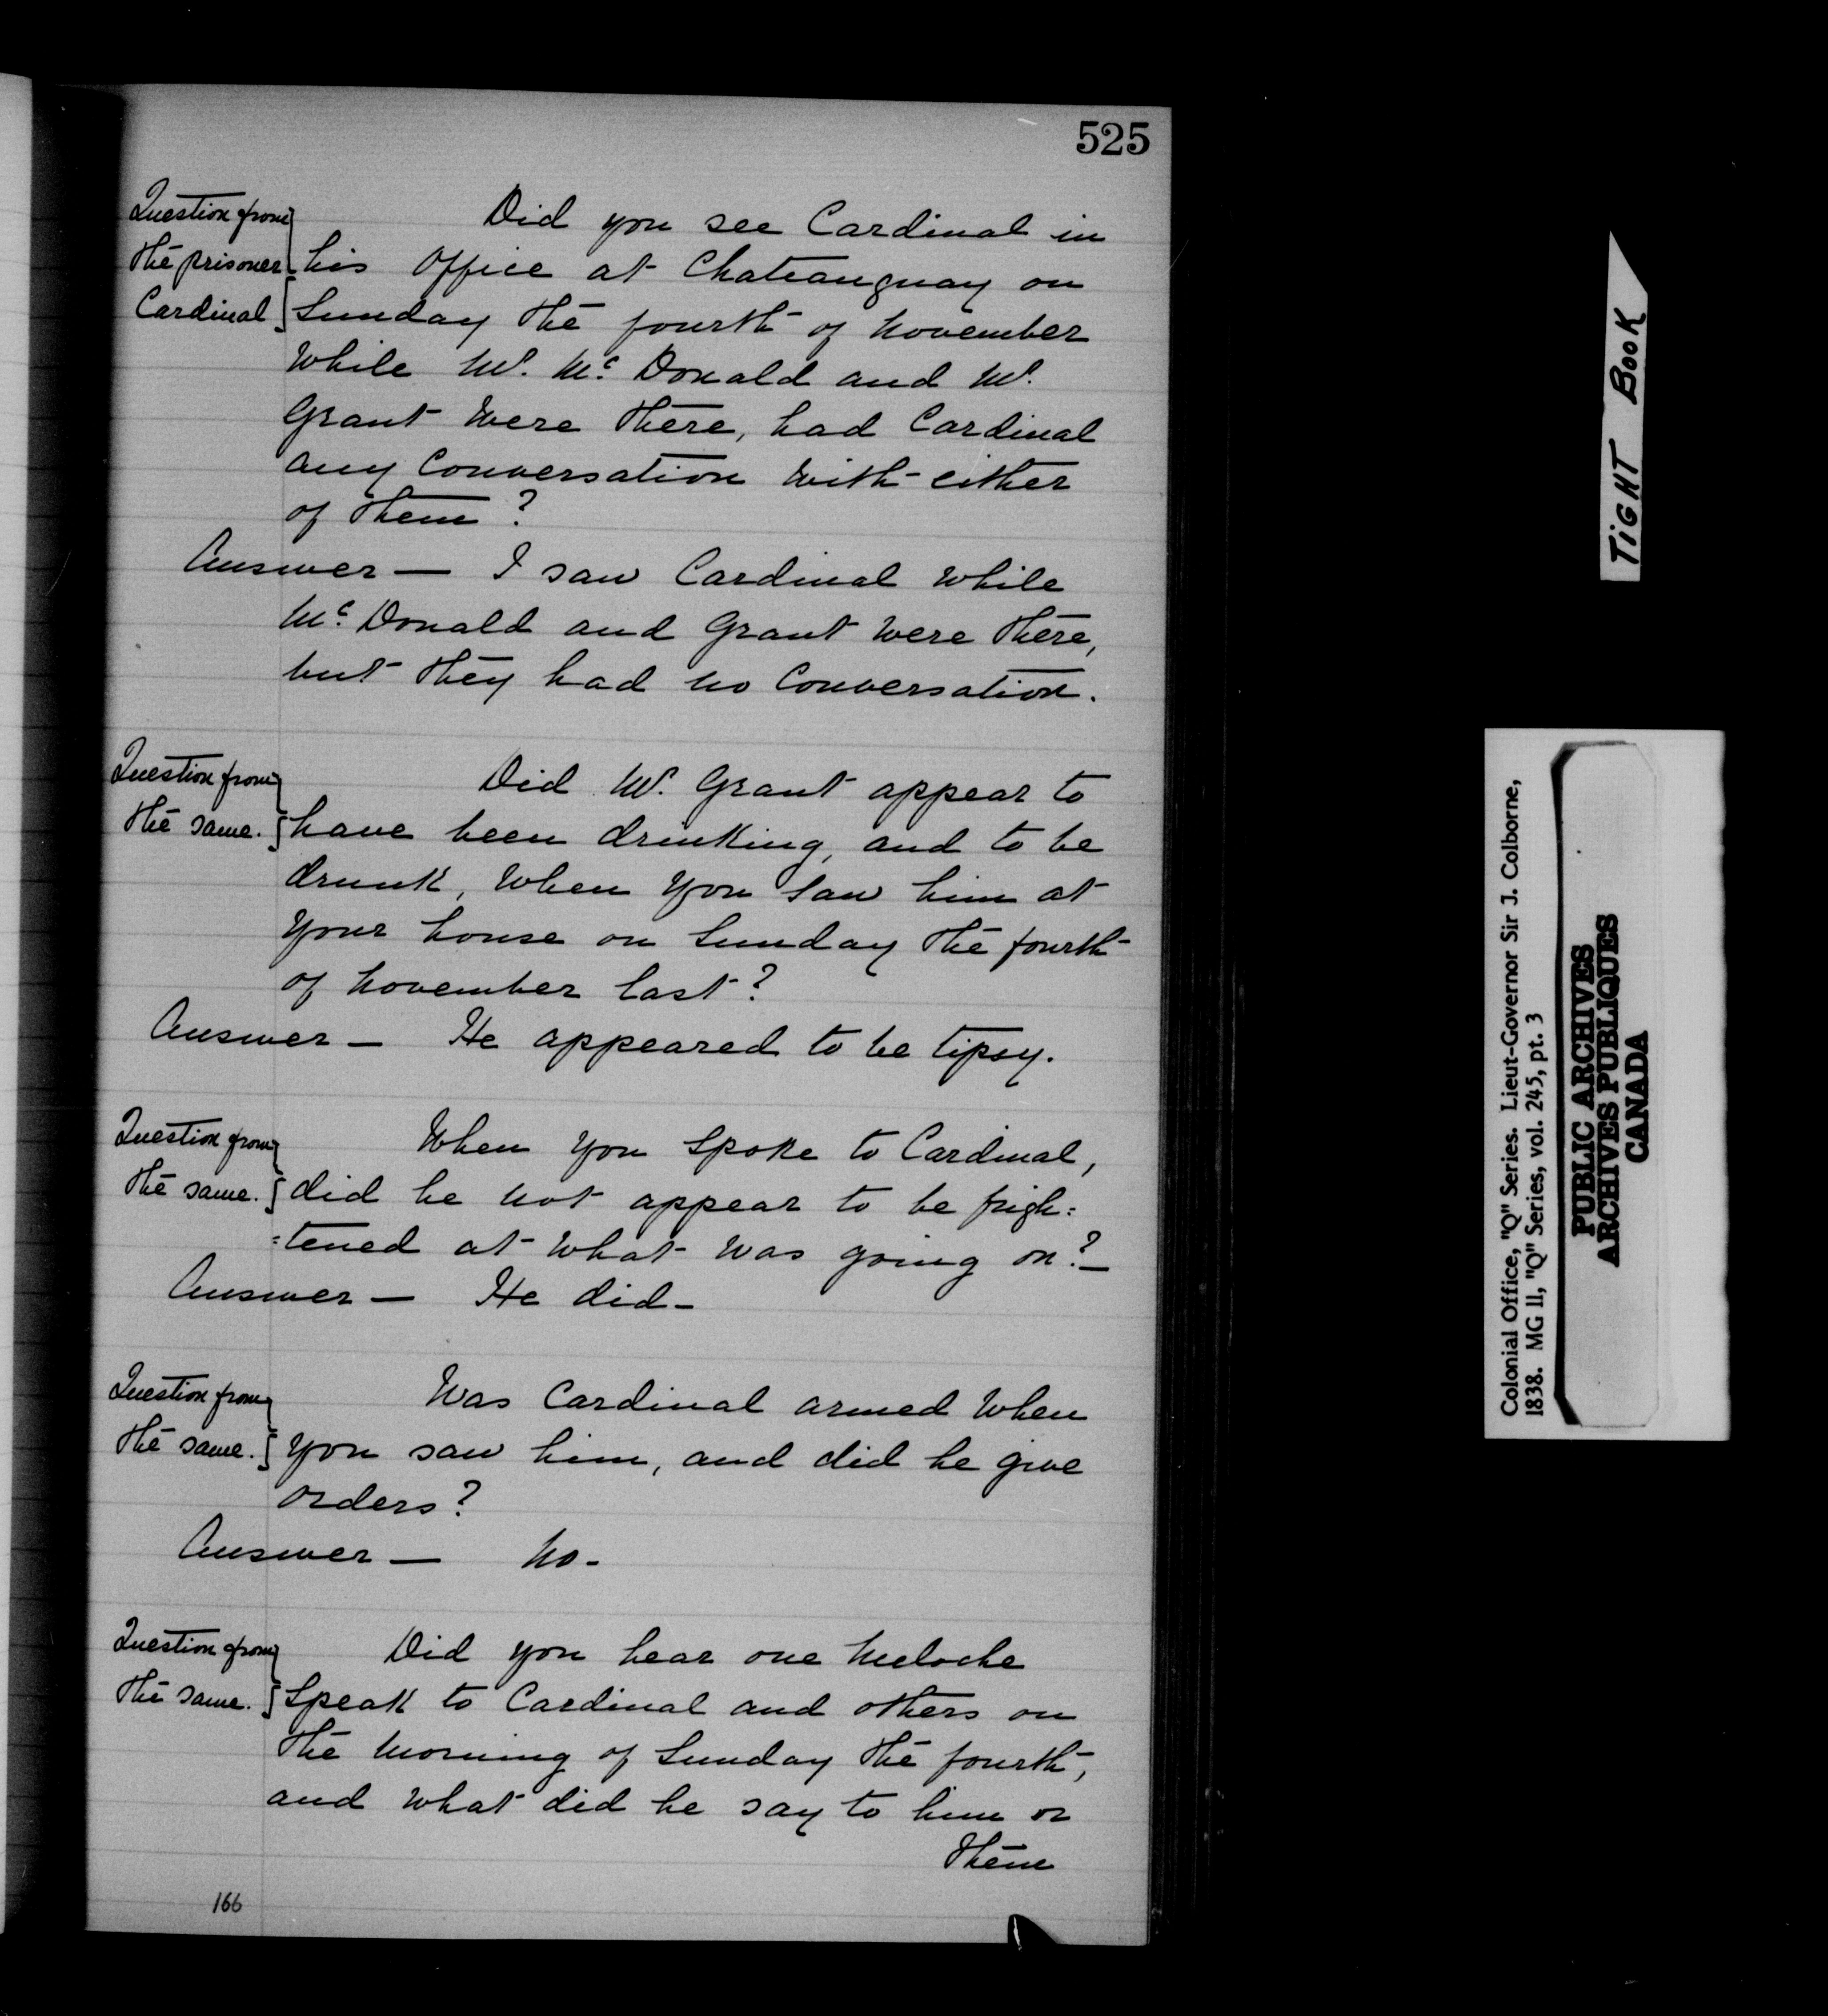 525
Question from
the prisoner
Cardinal
Did you see Cardinal in
his Office at Chateauguay on
Sunday the fourth of November
While Mr. Mc. Donald and Mr.
Grant Were there, had Cardinal
any Conversation With either
of them?
Answer — I saw Cardinal While
Mc. Donald and Grant Were there,
but they had no Conversation.
Question from
the same.
Did Mr. Grant appear to
have been drinking, and to be
drunk, When you saw him at
your house on Sunday the fourth
of November last?
Answer — He appeared to be tipsy.
Question from
the same.
When you Spoke to Cardinal,
did he not appear to be frigh=
=tened at What Was going on?—
Answer — He did—
Question from
the same.
Was Cardinal armed When
you saw him, and did he give
orders?
Answer — No—
Question from
the same.
Did you hear one Meloche
Speak to Cardinal and others on
the Morning of Sunday the fourth,
and What did he say to him or
them
166
TIGHT BOOK
Colonial Office, "Q" Series. Lieut-Governor Sir J. Colborne,
1838. MG 11, "Q" Series, vol. 245, pt. 3
PUBLIC ARCHIVES
ARCHIVES PUBLIQUES
CANADA